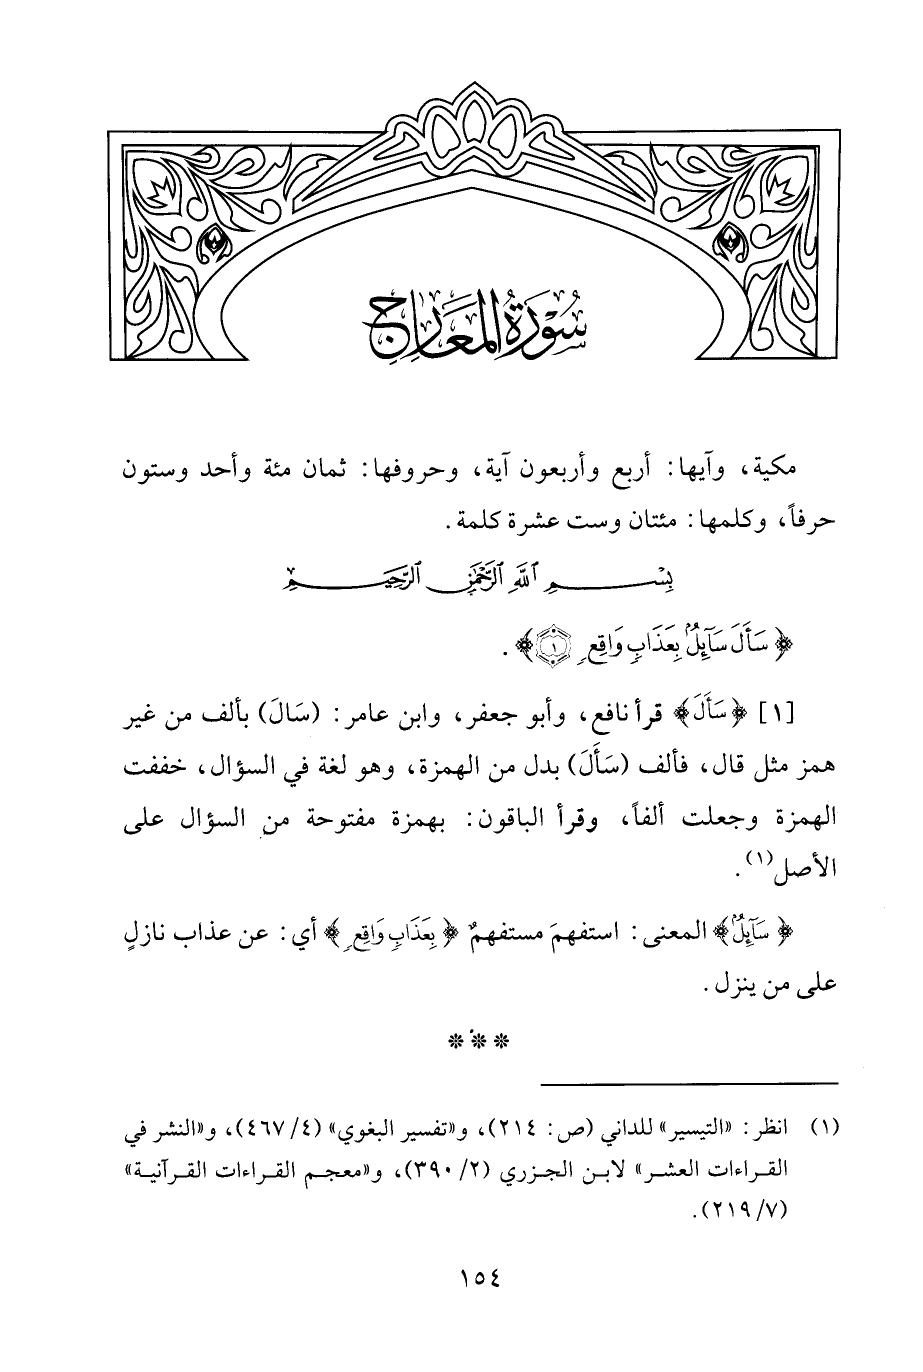 سُورَةُ المَعَارِجِ
مكية، وآيها: أربع وأربعون آية، وحروفها: ثمان مئة وأحد وستون
حرفاً، وكلمها: مئتان وست عشرة كلمة.
بِسْمِ اللَّهِ الرَّحْمَٰنِ الرَّحِيمِ
﴿سَأَلَ سَآئِلٌۢ بِعَذَابٍ وَاقِعٍ ١﴾.
[١] ﴿سَأَلَ﴾ قرأ نافع، وأبو جعفر، وابن عامر: (سَالَ) بألف من غير
همز مثل قال، فألف (سَأَلَ) بدل من الهمزة، وهو لغة في السؤال، خففت
الهمزة وجعلت ألفاً، وقرأ الباقون: بهمزة مفتوحة من السؤال على
الأصل(١).
﴿سَآئِلٌۢ﴾ المعنى: استفهمَ مستفهمٌ ﴿بِعَذَابٍ وَاقِعٍ﴾ أي: عن عذاب نازلٍ
على من ينزل.
* * *
(١) انظر: «التيسير» للداني (ص: ٢١٤)، و«تفسير البغوي» (٤/ ٤٦٧)، و«النشر في
القراءات العشر» لابن الجزري (٢/ ٣٩٠)، و«معجم القراءات القرآنية»
(٧/ ٢١٩).
١٥٤